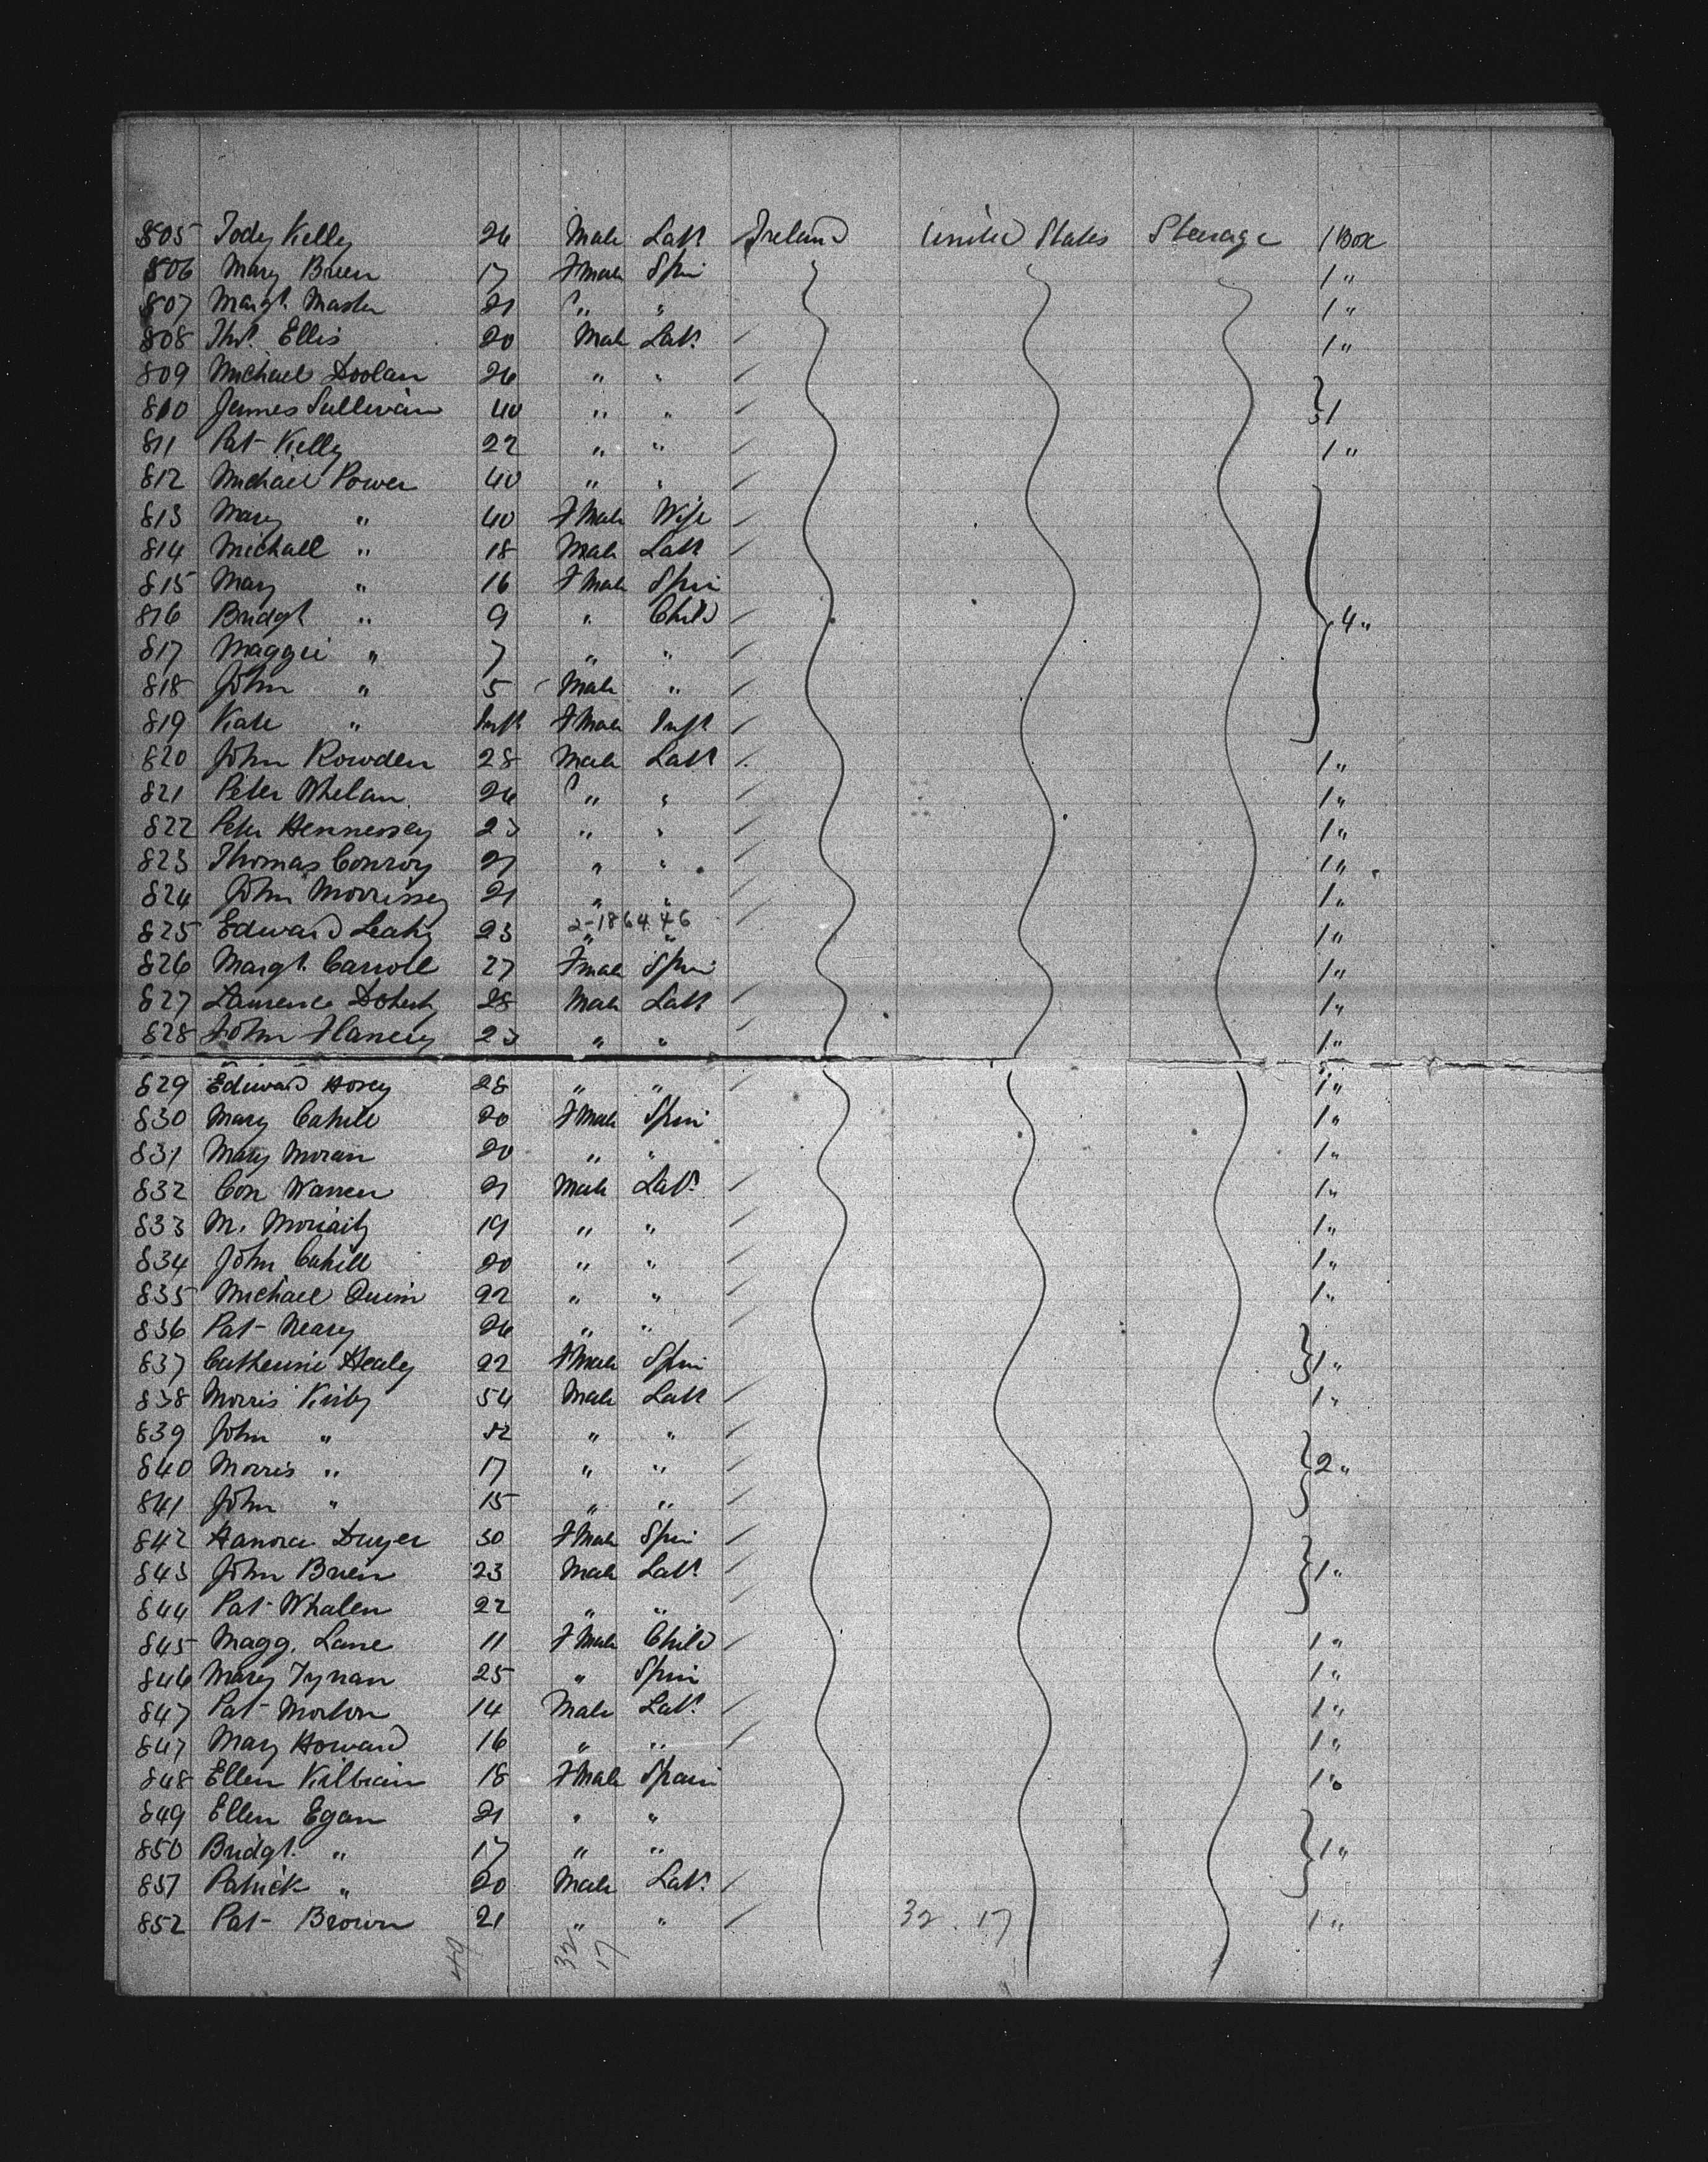 805 Tody Kelly 26 Male Labr Ireland United States Steerage 1 Box
806 Mary Breen 17 Fmale Spin 1 "
807 Margt. Master 21 " " 1 "
808 Thos. Ellis 20 Male Labr 1 "
809 Michael Doolan 26 " "
810 James Sullivan 40 " " 1
811 Pat Kelly 22 " " 1 "
812 Michael Power 40 " "
813 Mary " 40 Fmale Wife
814 Michall " 18 Male Labr
815 Mary " 16 Fmale Spin
816 Bridgt " 9 " Child 4 "
817 Maggie " 7 " "
818 John " 5 Male "
819 Kate " Inft Fmale Inft
820 John Rowden 28 Male Labr 1 "
821 Peter Whelan 26 " " 1 "
822 Peter Hennessey 23 " " 1 "
823 Thomas Conroy 21 " " 1 "
824 John Morrissey 21 " " 1 "
2-186446
825 Edward Leahy 23 " " 1 "
826 Margt. Carroll 27 Fmale Spin 1 "
827 Laurence Doherty 28 Male Labr 1 "
828 John Flanery 23 " " 1 "
829 Edward Hosey 28 " " 1 "
830 Mary Cahill 20 Fmale Spin 1 "
831 Mary Moran 20 " " 1 "
832 Con Warren 21 Male Labr 1 "
833 M. Moriaity 19 " " 1 "
834 John Cahill 20 " " 1 "
835 Michael Quinn 22 " " 1 "
836 Pat Neary 26 " "
837 Catherine Healey 22 Fmale Spin 1 "
838 Morris Kirby 54 Male Labr 1 "
839 John " 52 " "
840 Morris " 17 " " 2 "
841 John " 15 " "
842 Hanora Dwyer 30 Fmale Spin
843 John Brien 23 Male Labr 1 "
844 Pat Whalen 22 " "
845 Magg. Lane 11 Fmale Child 1 "
846 Mary Tynan 25 " Spin 1 "
847 Pat Morton 14 Male Labr 1 "
847 Mary Howard 16 " " 1 "
848 Ellen Kilbrain 18 Fmale Spain 1 "
849 Ellen Egan 21 " "
850 Bridgt. " 17 " " 1 "
851 Patrick " 20 Male Labr
852 Pat Brown 21 " " 32 . 17 1 "
49 32 17